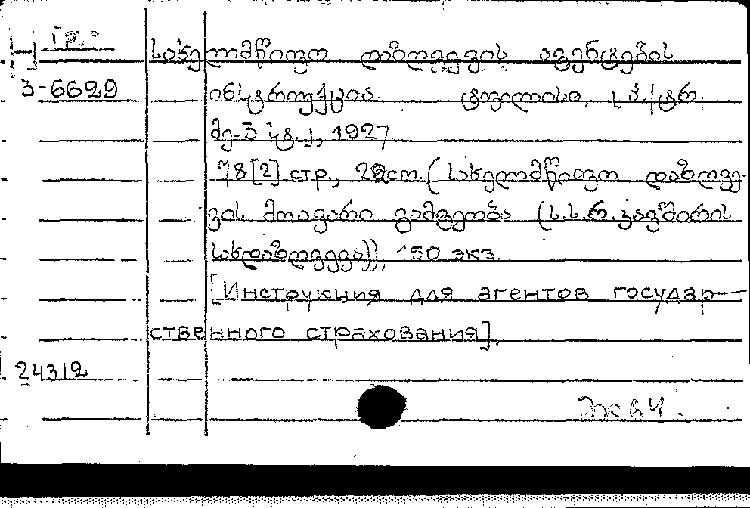 Гр.
სახელმწიფო დაზღვევის აგენტების
3-6629
ინსტრუქცია. ტფილისი,
მე-3 სტ., 1927
78 [2] стр., 22см. (სახელმწიფო დაზღვე-
ვის მთავარი გამგეობა (ს.ს.რ. კავშირის
სახდაზღვევა)), 150 экз.
[Инструкция для агентов государ-
ственного страхования].
24312